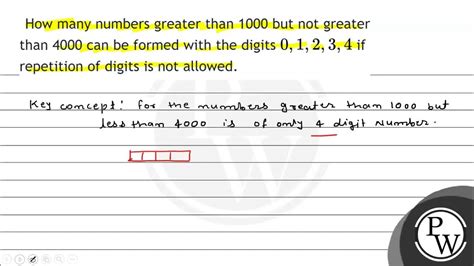 How many numbers greater than 1000 but not greater
than 4000 can be formed with the digits 0, 1, 2, 3, 4 if
repetition of digits is not allowed.
Key concept: for the numbers greater than 1000 but
less than 4000 is of only 4 digit number.
P
W
PW